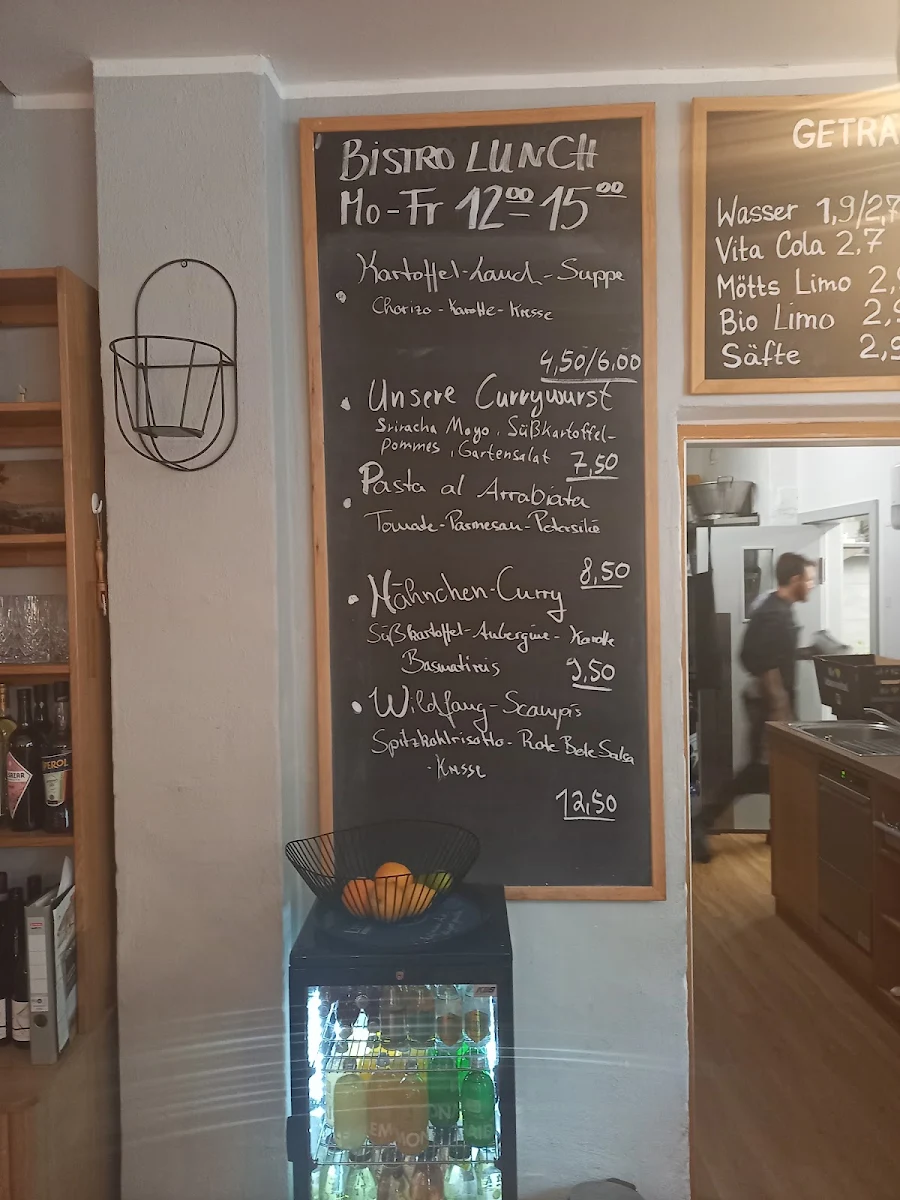 BiSTRO LUNCH
Mo-Fr 12⁰⁰-15⁰⁰
Kartoffel-Lauch-Suppe
Chorizo-Karotte-Kresse
4,50/6,00
Unsere Currywurst
Sriracha Mayo, Süßkartoffel-
Pommes, Gartensalat 7,50
Pasta al Arrabiata
Tomate-Parmesan-Petersilie
8,50
Hähnchen-Curry
Süßkartoffel-Aubergine-Karotte
Basmatireis 9,50
Wildfang-Scampis
Spitzkohlrisotto-Rote Bete Salsa
-Kresse
12,50
GETRÄ
Wasser 1,9/2,7
Vita Cola 2,7
Mötts Limo 2,
Bio Limo 2,9
Säfte 2,9